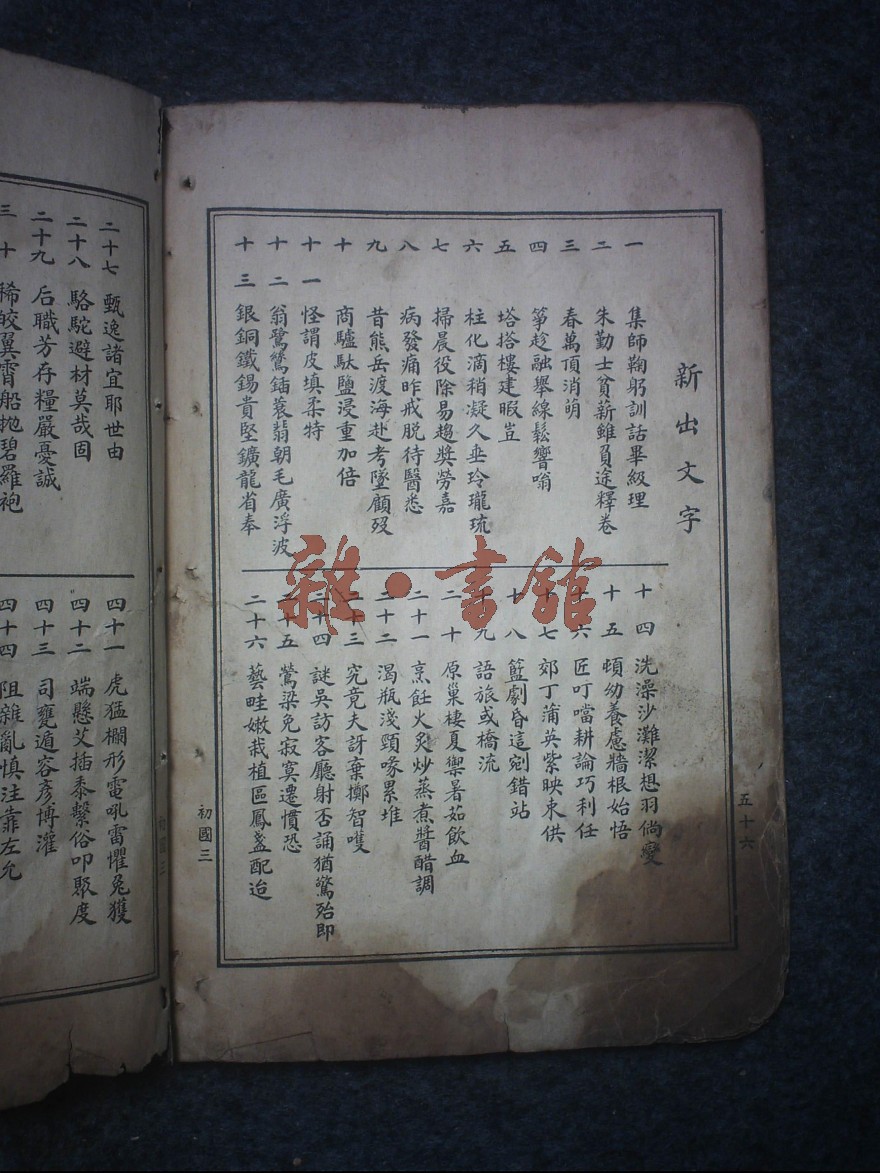 新出文字
一 集師鞠躬訓話畢級理
二 朱勤士貧薪雖負途釋卷
三 春萬頂消萌
四 箏趁融舉線鬆響嗡
五 塔搭樓建暇豈
六 柱化滴稍凝久垂玲瓏琉
七 掃晨役除易趨獎勞嘉
八 病發痛昨戒脱待醫悉
九 昔熊岳渡海赴考墜顧歿
十 商驢馱鹽浸重加倍
十一 怪謂皮填柔特
十二 翁鷺鷥鍤蓑翡朝毛廣浮波
十三 銀銅鐵錫貴堅鑛龍省奉
十四 洗澡沙灘潔想羽倘變
十五 頓幼養慮牆根始悟
十六 匠叮噹耕論巧利任
十七 郊丁蒲英紫映束供
十八 籃劇昏這剜錯站
十九 語旅或橋流
二十 原巢棲夏禦暑茹飲血
二十一 烹飪火炙炒蒸煮醬醋調
二十二 渴瓶淺頸喙累堆
二十三 究竟夫訝棄擲智嘎
二十四 謎吳訪客廳射否誦猶驚殆即
二十五 鶯梁免寂寞遷慣恐
二十六 藝畦嫩栽植區鳳盞配迨
五十六
初國三
雜·書館
二十七 甄逸諸宜耶世由
二十八 駱駝避材莫哉固
二十九 后職芳存糧嚴憂誠
三十 稀皎翼霄船拋碧羅袍
四十一 虎猛欄形電吼雷懼兔獲
四十二 端懸艾插黍繫俗叩聚度
四十三 司甕遁容彥博灌
四十四 阻雜亂慎注靠左允